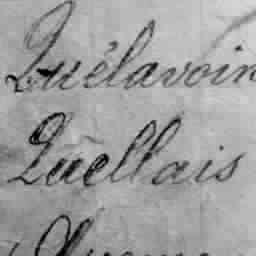 Quélavoin
Quellais